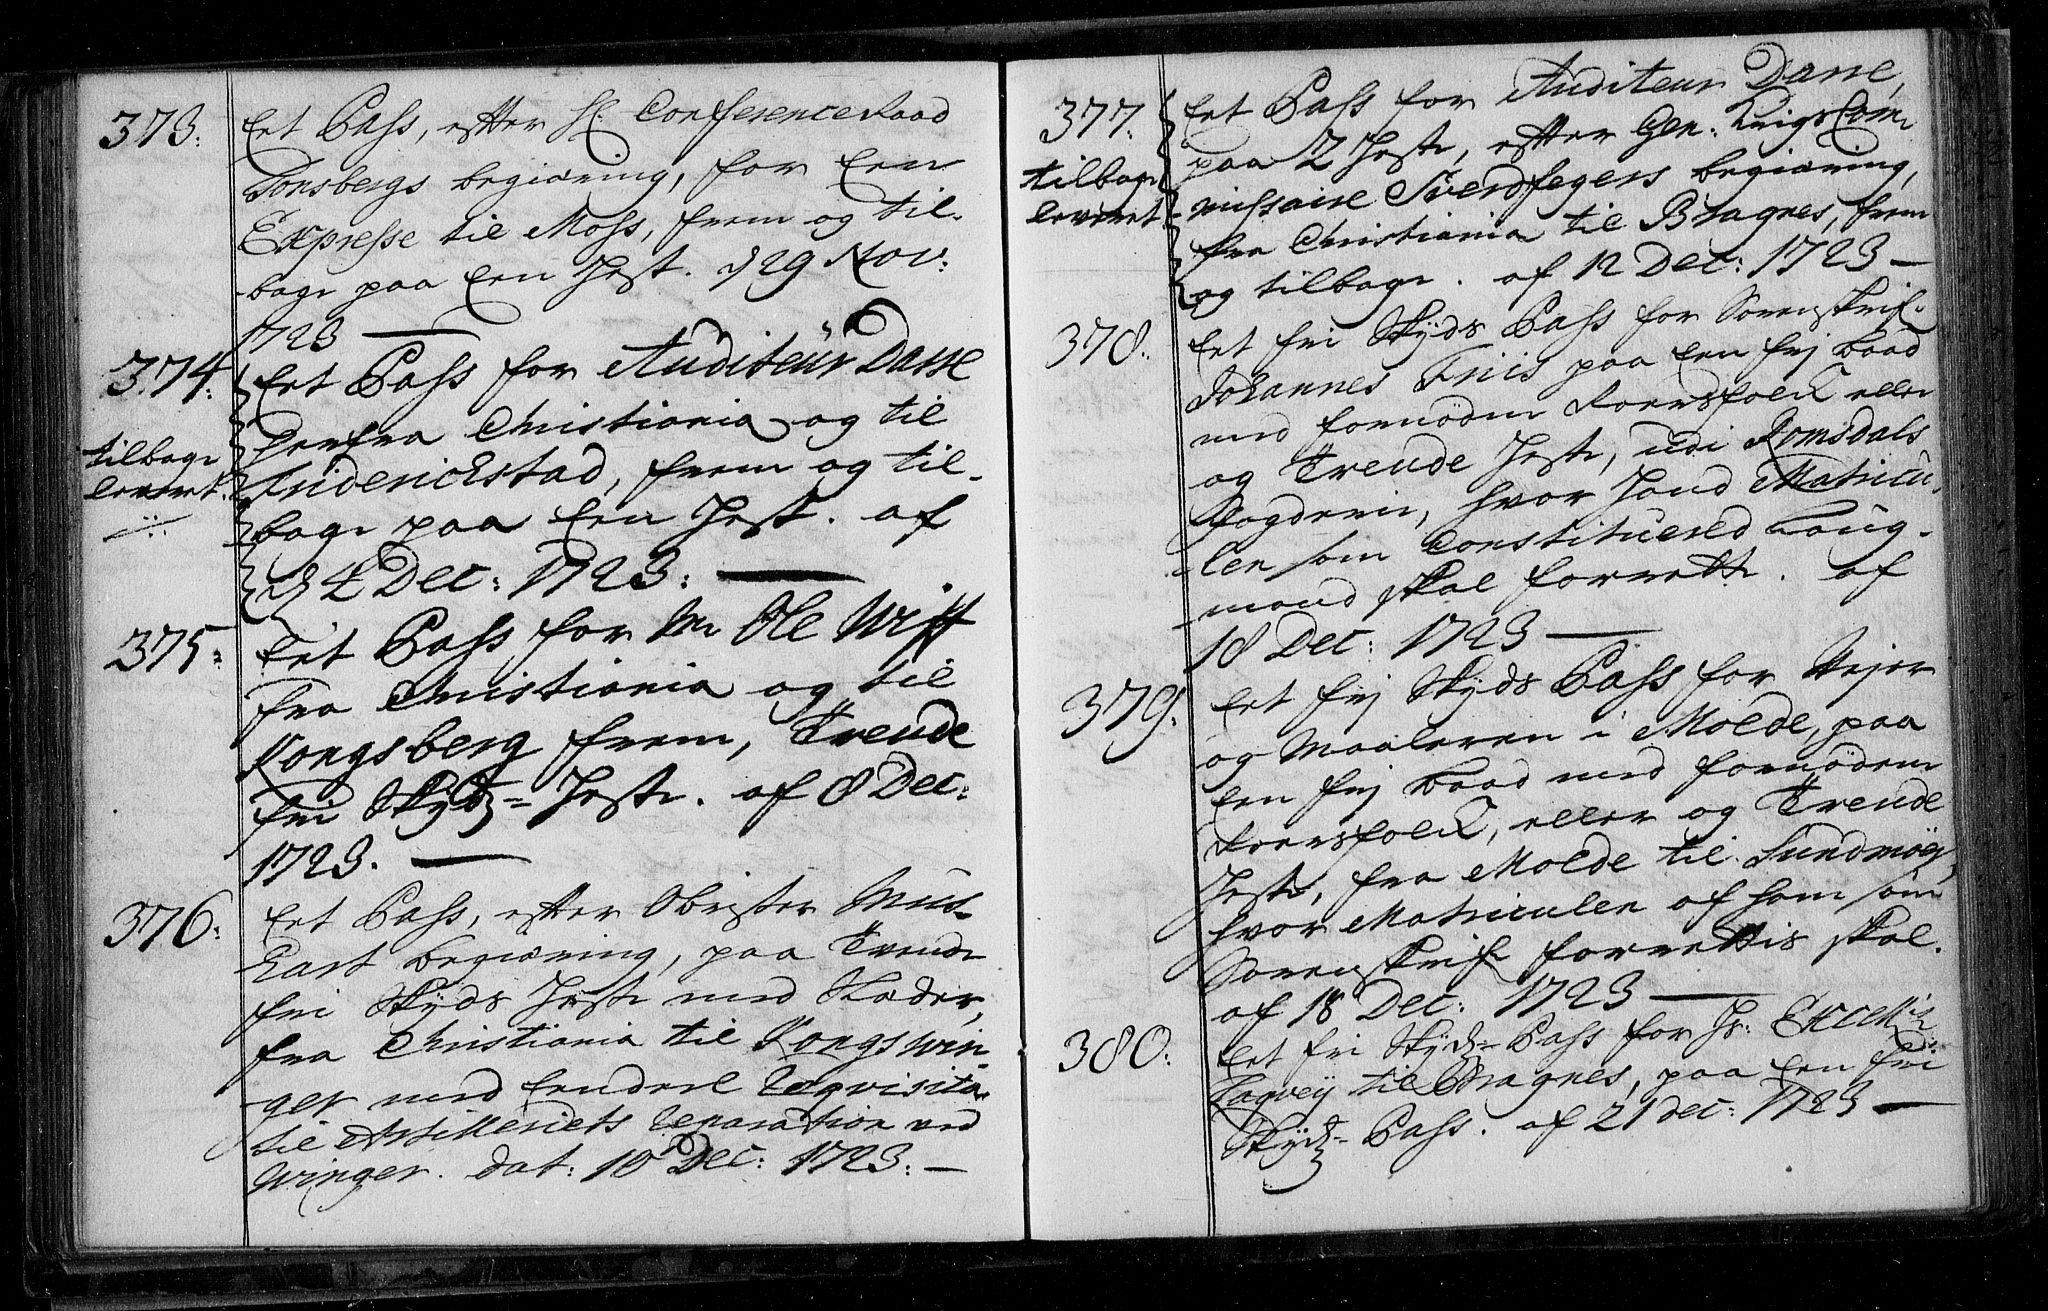 373:
Eet Pass, efter H: ConferenceRaad
Tonsbergs begiæring, for Een
Expresse til Moss, frem og til-
bage paa Een Hest. d 29 Nov:
1723
374:
tilbage
levert.
Eet Pass for Auditeur Dasse
herfra Christiania og til
Friderickstad, frem og til-
bage paa Een Hest. af
d 4 Dec: 1723:
375:
Eet Pass for Mr Ole Wist
fra Christiania og til
Kongsberg frem, Trende
fri Skydtz-Heste. af 8 Dec:
1723.
376:
Eet Pass, efter Obrister
begiæring, paa Trende
fri Skyds Heste med Slæder,
fra Christiania til Kongswin-
ger med Eendeel reqvisita
til Artilleriets reparation ved
Winger. dat: 10 Dec: 1723:
377:
tilbage
leveret
Eet Pass for Auditeur Dasse,
paa 2 Heste, efter Gen: KrigsCom-
missaire Sverdfegers begiæring,
fra Christiania til Bragnes, frem
og tilbage. af 12 Dec: 1723
378:
Eet fri Skyds Pass for Sorenskrif:
Johannes Friis paa Een frj baad
med fornøden Roersfolck eller
og Trende Heste, udi Romsdals
fogderie, hvor hand Matricu-
len som Constituered Laug-
mand skal forrette. af
18 Dec: 1723
379:
Eet frj Skyds Pass for Vejer
og Maaleren i Molde, paa
Een frj baad med fornøden
Roersfolck, eller og Trende
Heste, fra Molde til Sundmøer,
hvor Matriculen af ham som
Sorenskrifr forrettis skal.
af 18 Dec: 1723
380:
Eet fri Skydtz-Pass for Hs: Excell:
til Bragnes, paa Een fri
Skydtz-Pass. af 21 Dec: 1723